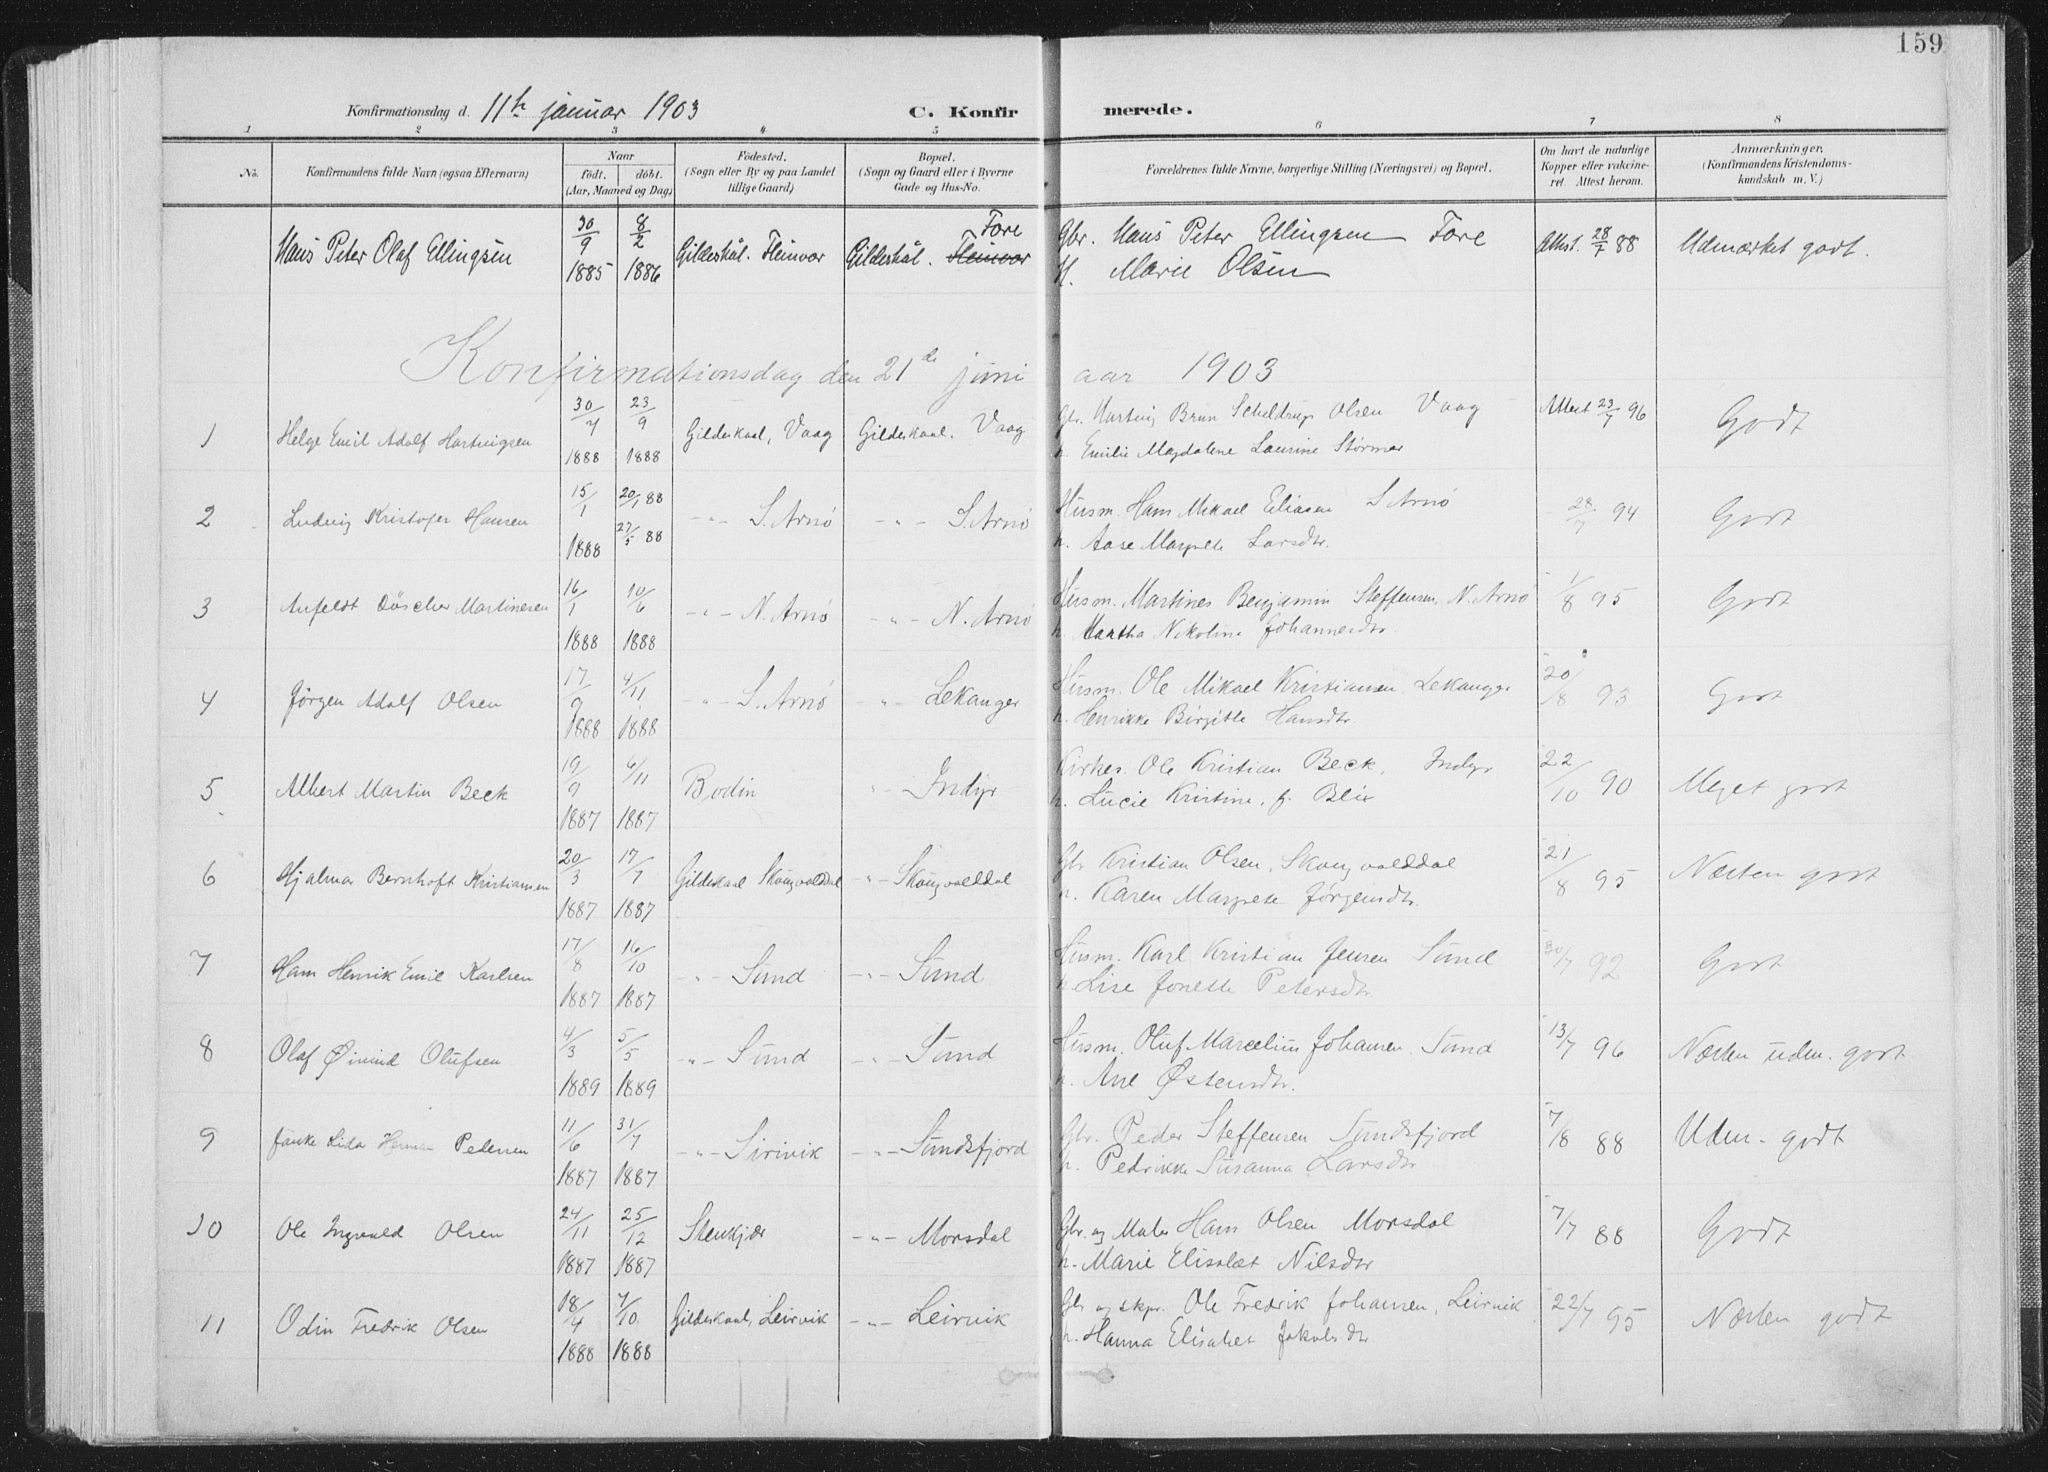 159
Konfirmationsdag d. 11te januar 1903 C. Konfirmerede.
1 2 3 4 5 6 7 8
No. Konfirmandens fulde Navn (ogsaa Efternavn) Naar født. døbt. (Aar, Maaned og Dag) Fødested. (Sogn eller By og paa Landet tillige Gaard) Bopæl. (Sogn og Gaard eller i Byerne Gade og Hus-No. Forældrenes fulde Navne, borgerlige Stilling (Næringsvei) og Bopæl. Om havt de naturlige Kopper eller vakcineret. Attest herom. Anmærkninger. (Konfirmandens Kristendomskundskab m. V.)
Hans Peter Olaf Ellingsen 30/9 1885 8/2 1886 Gildeskål. Fleinvær Gildeskål. Fleinvær Fore Gbr. Hans Peter Ellingsen Fore
H. Marie Olsen Attest. 28/7 88 Udmærket godt.
Konfirmationsdag den 21de juni aar 1903
1 Helge Emil Adolf Hartvigsen 30/7 1888 23/9 1888 Gildeskaal, Vaag Gildeskaal. Vaag Gbr. Hartvig Brun Scheldrup Olsen Vaag
h. Emilie Magdalene Laurine Størmer Attest 23/7 96 Godt
2 Ludvig Kristofer Hansen 15/1 1888 20/1 88 27/5 88 -"- S. Arnø -"- S. Arnø Husm. Hans Mikael Eliasen S Arnø
h. Aase Margrete Larsdtr. 28/7 94 Godt
3 Anfeldt Martinesen 16/1 1888 10/6 1888 -"- N. Arnø -"- N. Arnø Husm. Martines Benjamin Steffensen, N. Arnø
h. Martha Nikoline Johannesdtr. 1/8 95 Godt
4 Jørgen Adolf Olsen 17/9 1888 4/11 1888 -"- S. Arnø -"- Lekanger Husm. Ole Mikael Kristiansen, Lekanger
h. Henrikke Birgitte Hansdtr. 20/8 93 Godt
5 Albert Martin Beck 19/9 1887 6/11 1887 Bodin -"- Indyr Kirkes. Ole Kristian Beck, Indyr
h. Lucie Kristine, f. Blix 22/10 90 Meget godt
6 Hjalmar Bernhoft Kristiansen 20/3 1887 17/7 1887 Gildeskaal Skougvolddal -"- Skougvolddal Gbr Kristian Olsen, Skougvolddal
h. Karen Margrete Jørgensdtr. 21/8 95 Næsten godt
7 Hans Henrik Emil Karlsen 17/8 1887 16/10 1887 -"- Sund -"- Sund Husm. Karl Kristian Jensen Sund
h. Lise Jonette Petersdtr 30/7 92 Godt
8 Olaf Øivind Olufsen 4/3 1889 5/5 1889 -"- Sund -"- Sund Husm. Oluf Marcelius Johansen. Sund
h. Ane Østensdtr. 13/7 96 Næsten udm. godt
9 Lida Pedersen 11/6 1887 31/7 1887 -"- Sirivik -"- Sundsfjord Gbr. Peder Steffensen Sundsfjord
h. Pedrikke Susanna Larsdtr 7/8 88 Udm. godt
10 Ole Ingvald Olsen 24/11 1887 25/12 1887 Stenkjær -"- Morsdal Gbr og Maler Hans Olsen Morsdal
h. Marie Elisabet Nilsdtr 7/7 88 Godt
11 Odin Fredrik Olsen 18/4 1888 7/10 1888 Gildeskaal, Leirvik -"- Leirvik Gbr og skpr. Ole Fredrik Johansen, Leirvik
h. Hanna Elisabet Jakobsdtr 22/7 95 Næsten godt